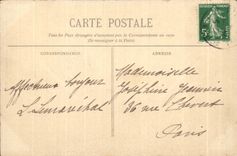 CARTE POSTALE
Tous les Pays étrangers n'acceptent pas la Correspondance au recto
(Se renseigner à la Poste)
CORRESPONDANCE
ADRESSE
Affectueux bonjour
L. Lemaréchal
Mademoiselle
Joséphine
36 rue
Paris